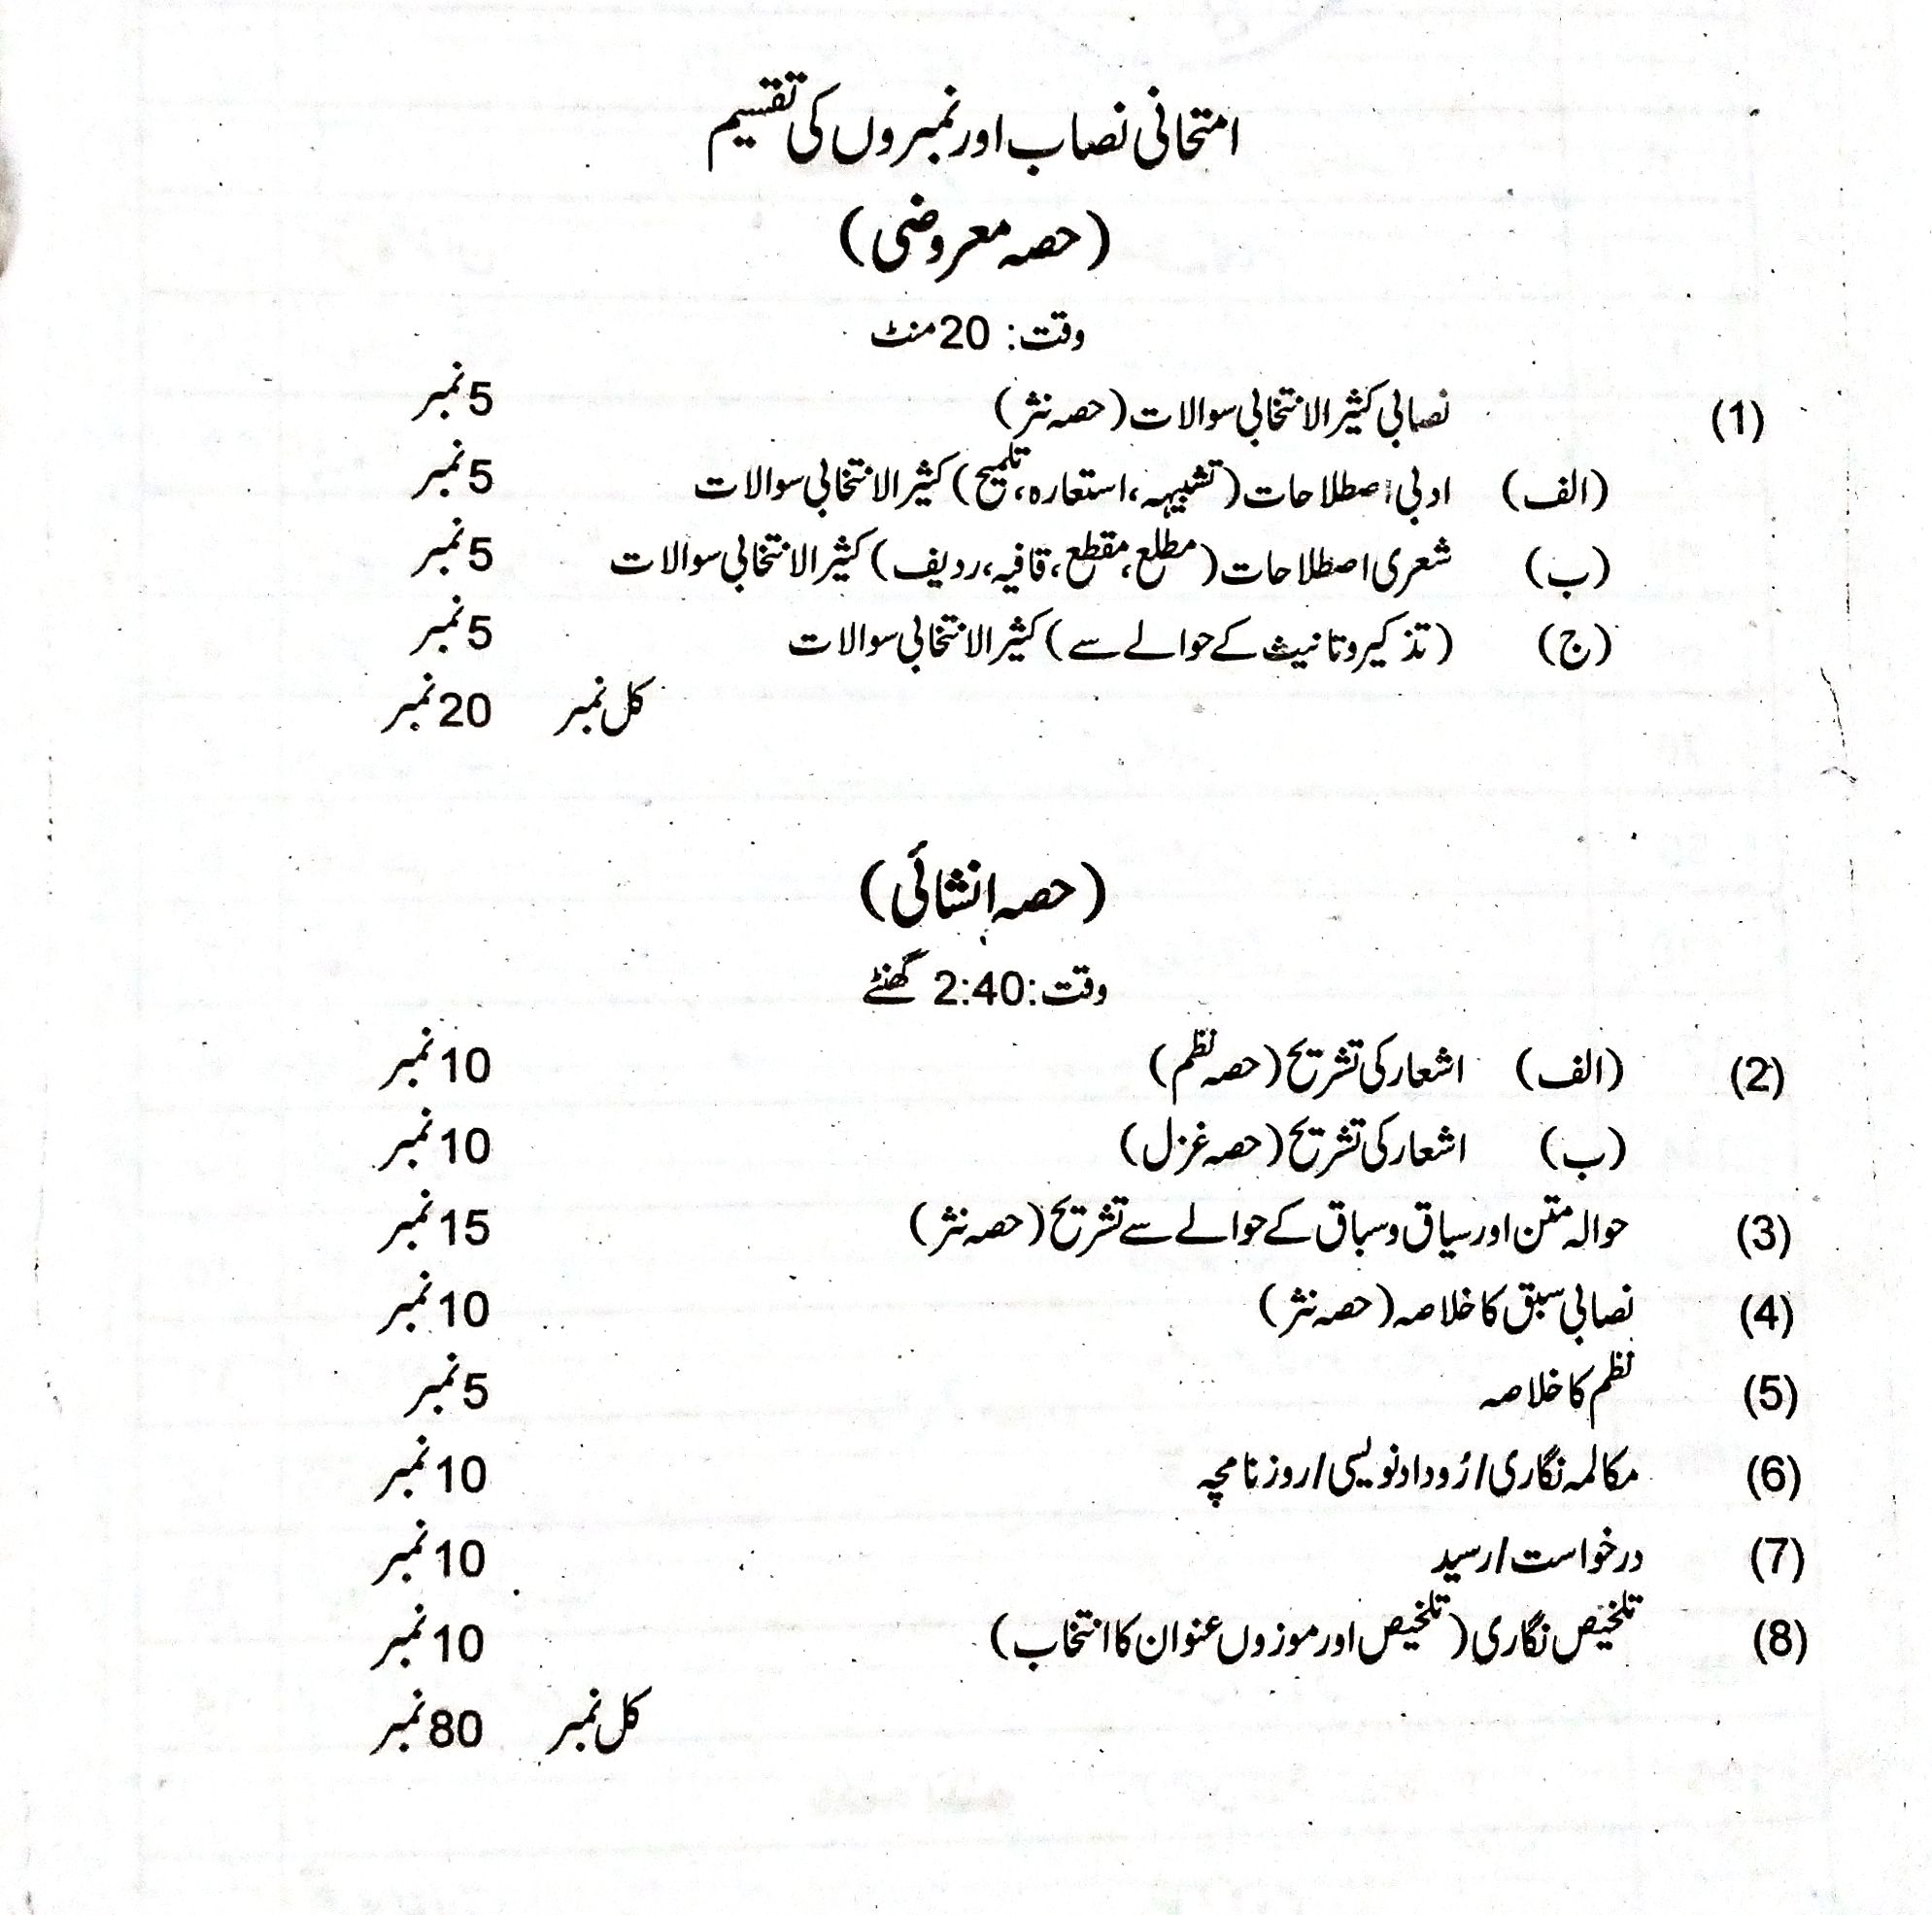 امتحانی نصاب اور نمبروں کی تقسیم
(حصہ معروضی)
وقت: 20 منٹ
(1) نصابی کثیر الانتخابی سوالات (حصہ نثر) 5 نمبر
(الف) ادبی اصطلاحات (تشبیہہ، استعارہ، تلمیح) کثیر الانتخابی سوالات 5 نمبر
(ب) شعری اصطلاحات (مطلع، مقطع، قافیہ، ردیف) کثیر الانتخابی سوالات 5 نمبر
(ج) (تذکیر و تانیث کے حوالے سے) کثیر الانتخابی سوالات 5 نمبر
کل نمبر 20 نمبر
(حصہ انشائی)
وقت: 2:40 گھنٹے
(2) (الف) اشعار کی تشریح (حصہ نظم) 10 نمبر
(ب) اشعار کی تشریح (حصہ غزل) 10 نمبر
(3) حوالہ متن اور سیاق و سباق کے حوالے سے تشریح (حصہ نثر) 15 نمبر
(4) نصابی سبق کا خلاصہ (حصہ نثر) 10 نمبر
(5) نظم کا خلاصہ 5 نمبر
(6) مکالمہ نگاری / رُوداد نویسی / روزنامچہ 10 نمبر
(7) درخواست / رسید 10 نمبر
(8) تلخیص نگاری (تلخیص اور موزوں عنوان کا انتخاب) 10 نمبر
کل نمبر 80 نمبر